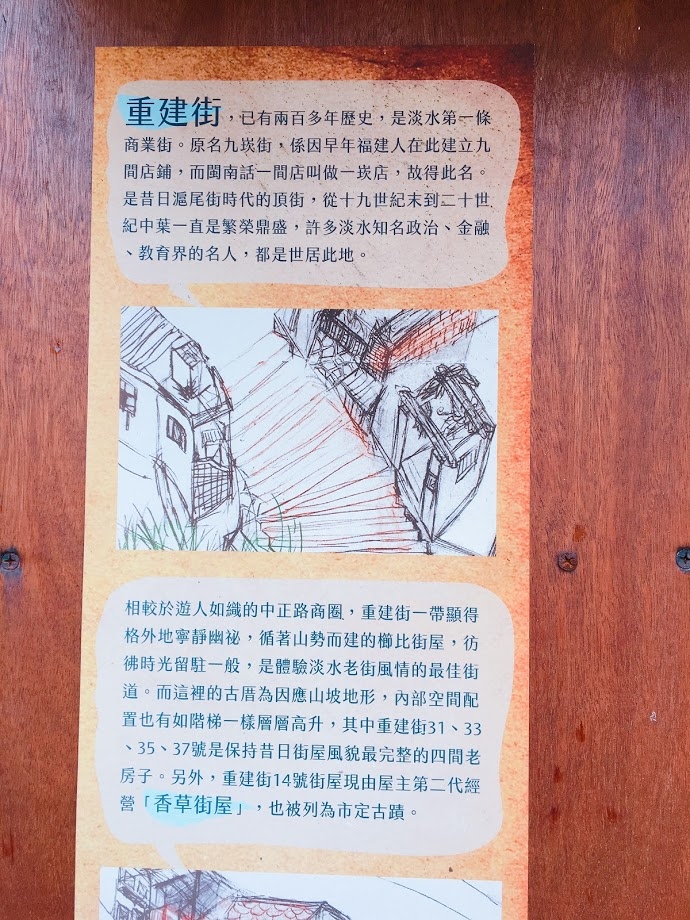 重建街，已有兩百多年歷史，是淡水第一條
商業街。原名九崁街，係因早年福建人在此建立九
間店鋪，而閩南話一間店叫做一崁店，故得此名。
是昔日滬尾街時代的頂街，從十九世紀末到二十世
紀中葉一直是繁榮鼎盛，許多淡水知名政治、金融
、教育界的名人，都是世居此地。
相較於遊人如織的中正路商圈，重建街一帶顯得
格外地寧靜幽祕，循著山勢而建的櫛比街屋，彷
彿時光留駐一般，是體驗淡水老街風情的最佳街
道。而這裡的古厝為因應山坡地形，內部空間配
置也有如階梯一樣層層高升，其中重建街31、33
、35、37號是保持昔日街屋風貌最完整的四間老
房子。另外，重建街14號街屋現由屋主第二代經
營「香草街屋」，也被列為市定古蹟。